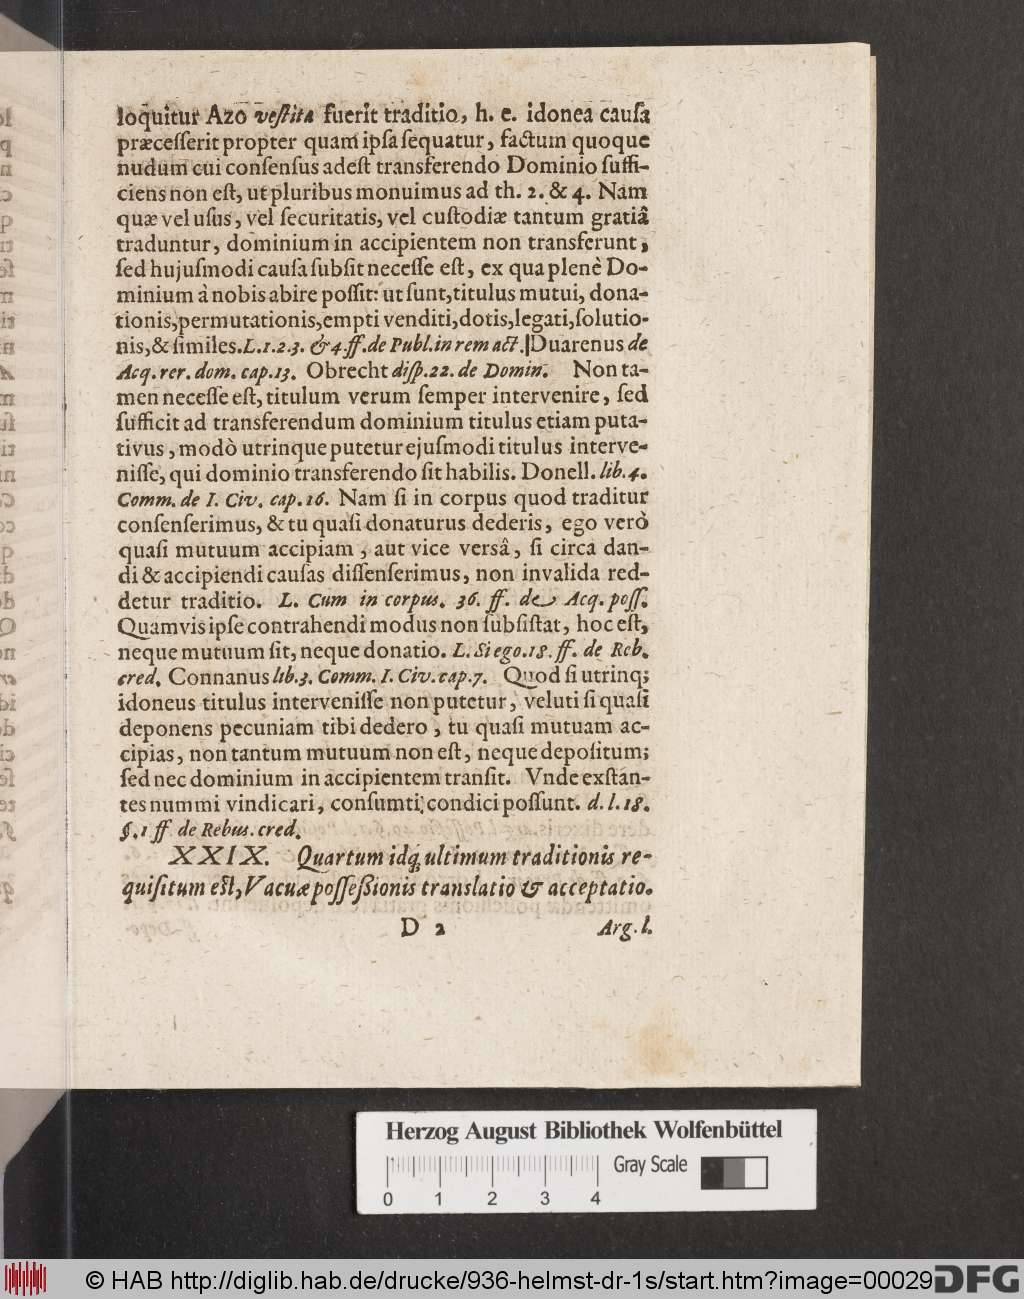 loquitur Azo veſtita fuerit traditio, h. e. idonea cauſa
præceſſerit propter quam ipſa ſequatur, factum quoque
nudum cui conſenſus adeſt transferendo Dominio ſuffi-
ciens non eſt, ut pluribus monuimus ad th. 2. & 4. Nam
quæ vel uſus, vel ſecuritatis, vel cuſtodiæ tantum gratiâ
traduntur, dominium in accipientem non transferunt,
ſed hujuſmodi cauſa ſubſit neceſſe eſt, ex qua plenè Do-
minium à nobis abire poſſit: ut ſunt, titulus mutui, dona-
tionis, permutationis, empti venditi, dotis, legati, ſolutio-
nis, & ſimiles. L. 1. 2. 3. & 4. ff. de Publ. in rem act. Duarenus de
Acq. rer. dom. cap. 13. Obrecht diſp. 22. de Domin. Non ta-
men neceſſe eſt, titulum verum ſemper intervenire, ſed
ſufficit ad transferendum dominium titulus etiam puta-
tivus, modò utrinque putetur ejuſmodi titulus interve-
niſſe, qui dominio transferendo ſit habilis. Donell. lib. 4.
Comm. de I. Civ. cap. 16. Nam ſi in corpus quod traditur
conſenſerimus, & tu quaſi donaturus dederis, ego verò
quaſi mutuum accipiam, aut vice verſâ, ſi circa dan-
di & accipiendi cauſas diſſenſerimus, non invalida red-
detur traditio. L. Cum in corpus. 36. ff. de Acq. poſſ.
Quamvis ipſe contrahendi modus non ſubſiſtat, hoc eſt,
neque mutuum ſit, neque donatio. L. Si ego. 18. ff. de Reb.
cred. Connanus lib. 3. Comm. I. Civ. cap. 7. Quod ſi utrinq;
idoneus titulus interveniſſe non putetur, veluti ſi quaſi
deponens pecuniam tibi dedero, tu quaſi mutuam ac-
cipias, non tantum mutuum non eſt, neque depoſitum;
ſed nec dominium in accipientem tranſit. Vnde exſtan-
tes nummi vindicari, conſumti condici poſſunt. d. l. 18.
§. 1 ff de Rebus. cred.
XXIX. Quartum idq; ultimum traditionis re-
quiſitum eſt, Vacuæ poſſeßionis translatio & acceptatio.
D 2 Arg. l.
Herzog August Bibliothek Wolfenbüttel
Gray Scale
0 1 2 3 4
© HAB http://diglib.hab.de/drucke/936-helmst-dr-1s/start.htm?image=00029
DFG